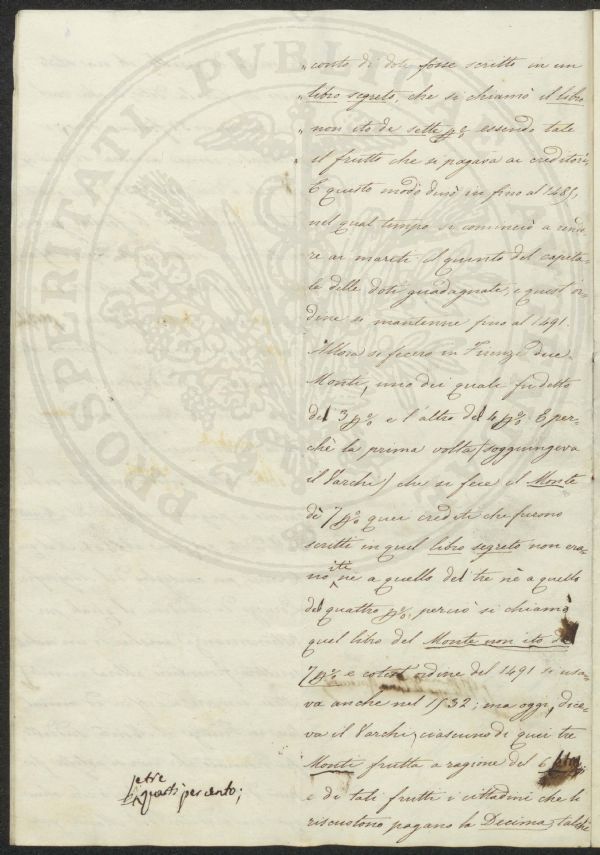 PROSPERITATI PVBLICAE AV
„ conto di doti fosse scritto in un
„ libro segreto, che si chiamò il libro
„ non ito de sette p% essendo tale
„ il frutto che si pagava ai creditori.
E questo modo durò in fino al 1485,
nel qual tempo si cominciò a rende-
re ai mariti il quinto del capita-
le delle doti guadagnate; e quest'or-
dine si mantenne fino al 1491.
Allora si fecero in Firenze due
Monti, uno dei quali fu detto
del 3 p% e l'altro del 4 p% E per-
chè la prima volta (soggiungeva
il Varchi) che si fece il Monte
di 7 p% quei crediti che furono
scritti in quel libro segreto non era-
no iti nè a quello del tre nè a quello
del quattro p%, perciò si chiamò
quel libro del Monte non ito de
7 p% e cotest'ordine del 1491 si usa-
va anche nel 1532; ma oggi, dice-
va il Varchi, ciascuno di quei tre
Monti frutta a ragione del 6
e tre
quarti per cento;
e di tali frutti i cittadini che li
riscuotono pagano la Decima, talchè